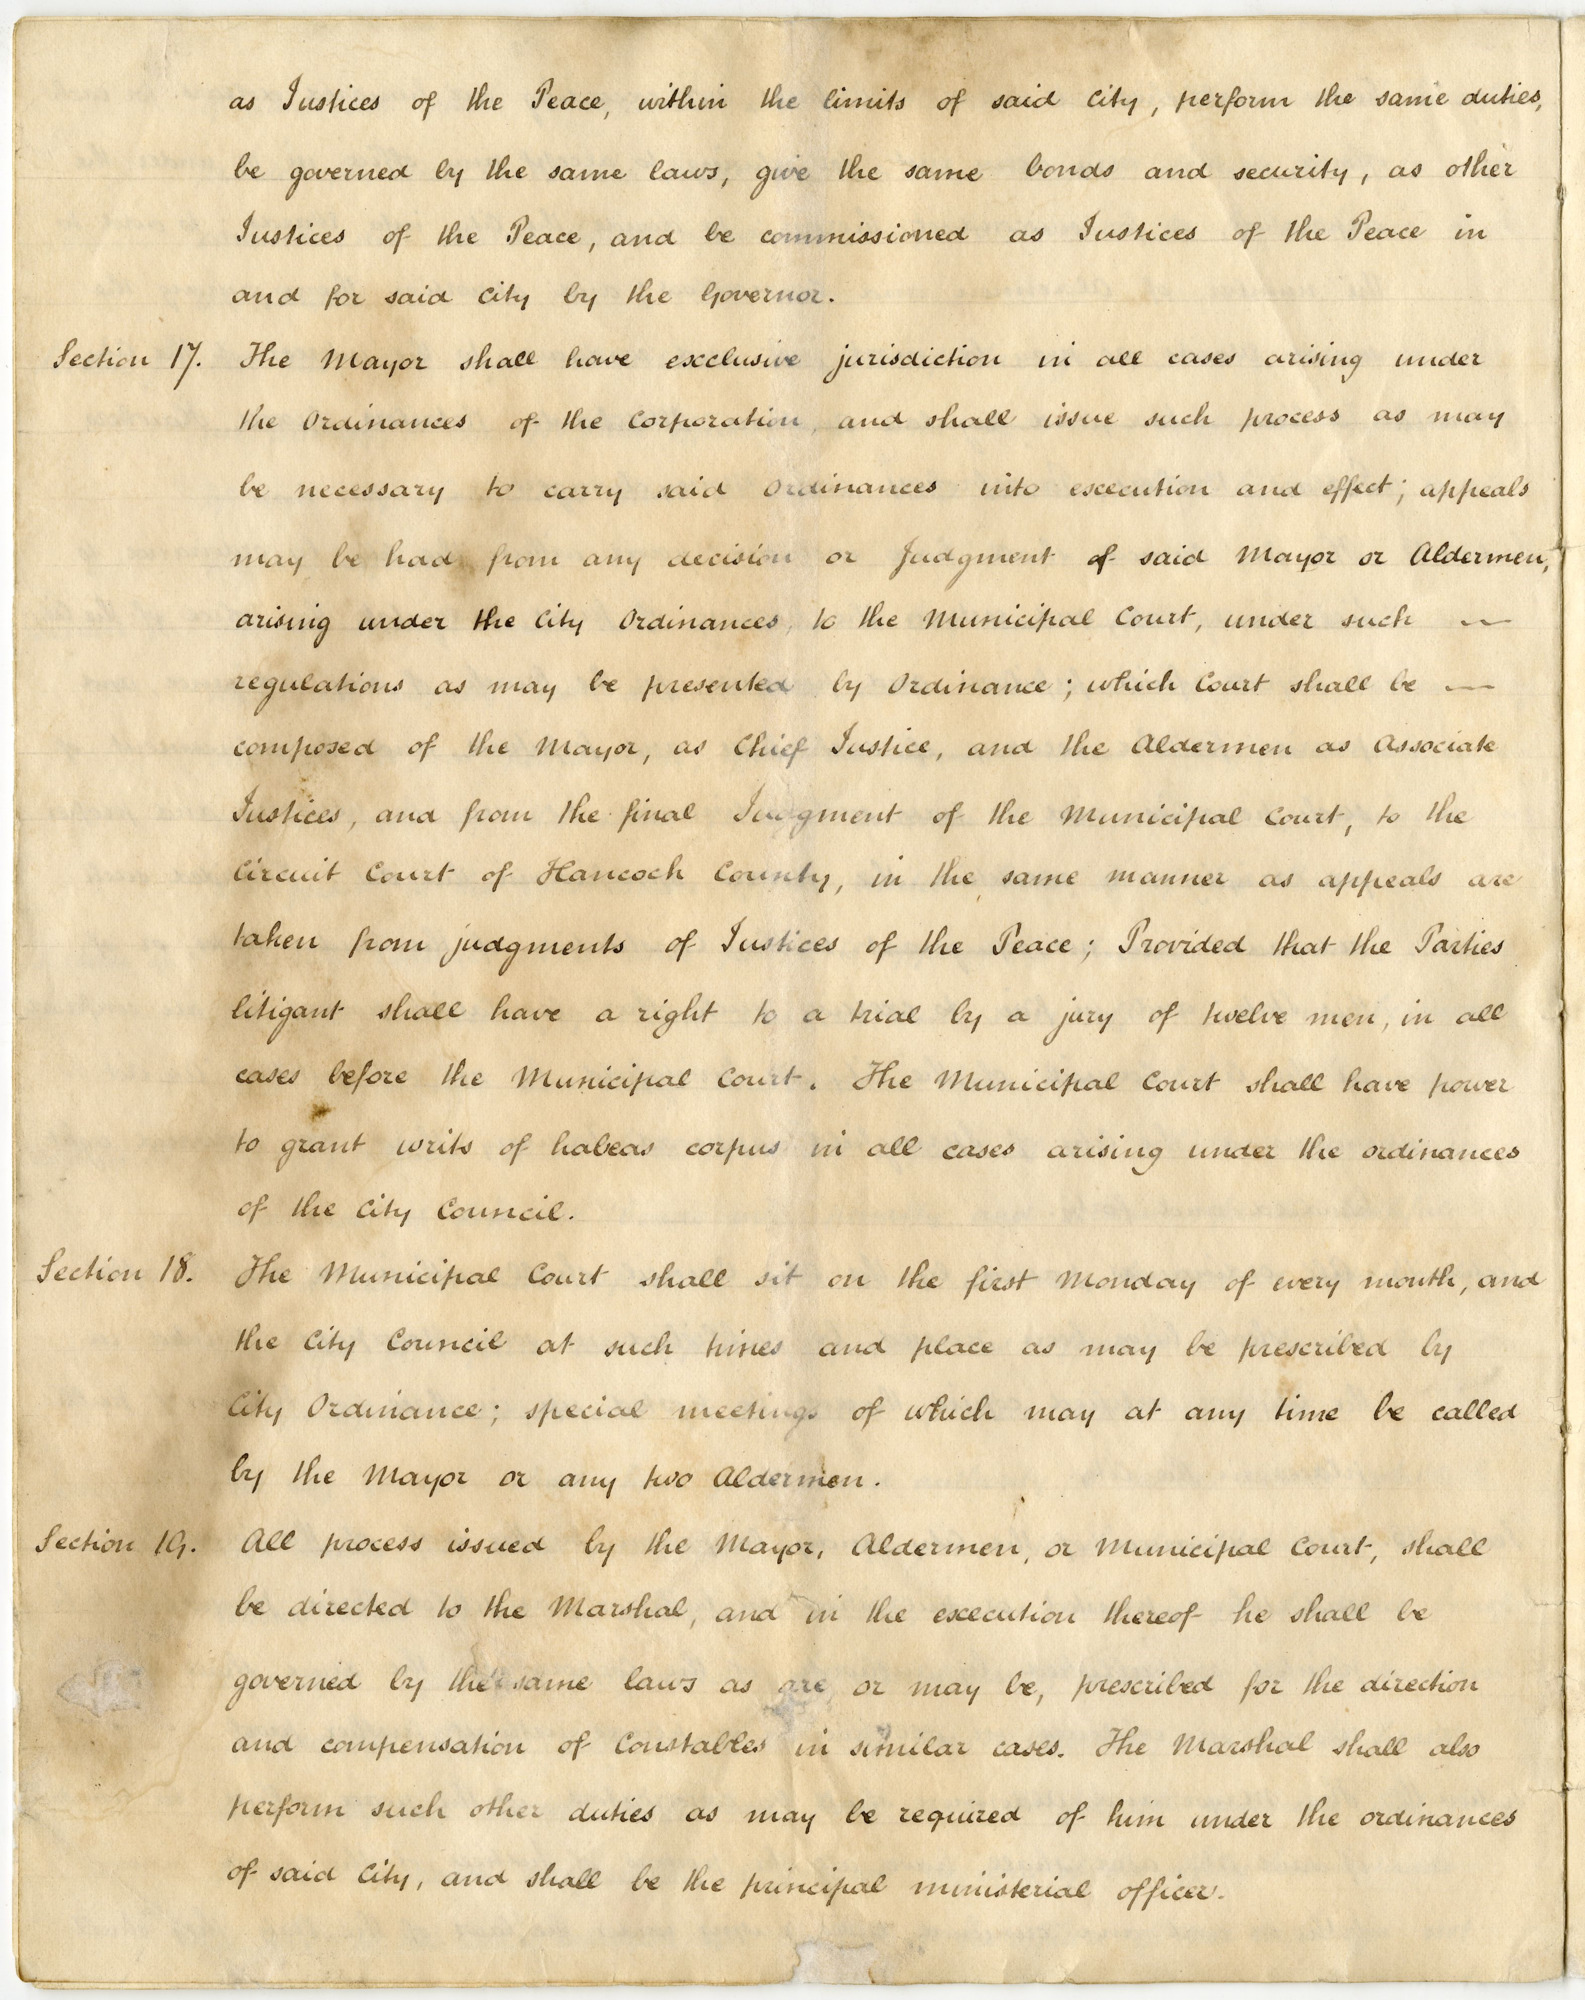 as Justices of the Peace, within the limits of said City, perform the same duties,
be governed by the same laws, give the same bonds and security, as other
Justices of the Peace, and be commissioned as Justices of the Peace in
and for said City by the Governor.
Section 17. The Mayor shall have exclusive jurisdiction in all cases arising under
the Ordinances of the Corporation, and shall issue such process as may
be necessary to carry said Ordinances into execution and effect; appeals
may be had from any decision or Judgment of said Mayor or Aldermen,
arising under the City Ordinances, to the Municipal Court, under such —
regulations as may be presented by Ordinance; which Court shall be —
composed of the Mayor, as Chief Justice, and the Aldermen as Associate
Justices, and from the final Judgment of the Municipal Court, to the
Circuit Court of Hancock County, in the same manner as appeals are
taken from judgments of Justices of the Peace; Provided that the Parties
litigant shall have a right to a trial by a jury of twelve men, in all
cases before the Municipal Court. The Municipal Court shall have power
to grant writs of habeas corpus in all cases arising under the ordinances
of the City Council.
Section 18. The Municipal Court shall sit on the first Monday of every month, and
the City Council at such times and place as may be prescribed by
City Ordinance; special meetings of which may at any time be called
by the Mayor or any two Aldermen.
Section 19. All process issued by the Mayor, Aldermen, or Municipal Court, shall
be directed to the Marshal, and in the execution thereof he shall be
governed by the same laws as are or may be, prescribed for the direction
and compensation of Constables in similar cases. The Marshal shall also
perform such other duties as may be required of him under the ordinances
of said City, and shall be the principal ministerial officer.